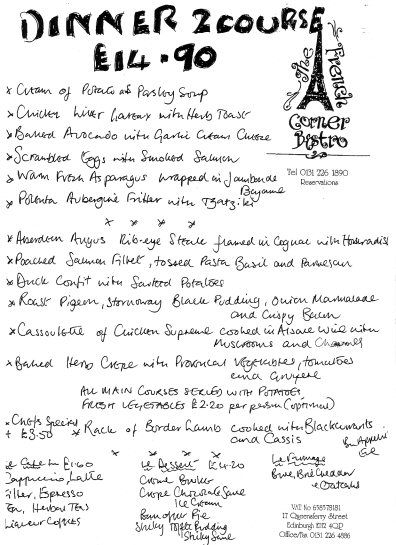 DINNER 2 COURSE
£14.90
The French
Corner
Bistro
Tel 0131 226 1890
Reservations
x Cream of Potato and Parsley Soup
x Chicken Liver Parfait with Herb Toast
x Baked Avocado with Garlic Cream Cheese
x Scrambled Eggs with Smoked Salmon
x Warm Fresh Asparagus wrapped in Jambon de
Bayonne
x Polenta Aubergine Fritter with Tzatziki
x x x x
x Aberdeen Angus Rib-eye Steak flamed in Cognac with Horseradish
x Poached Salmon Fillet, tossed Pasta Basil and Parmesan
x Duck Confit with Sauteed Potatoes
x Roast Pigeon, Stornoway Black Pudding, Onion Marmalade
and Crispy Bacon
x Cassoulette of Chicken Supreme cooked in Alsace Wine with
Mushrooms and
x Baked Herb Crepe with Provincal Vegetables, tomatoes
and Gruyere
ALL MAIN COURSES SERVED WITH POTATOES
FRESH VEGETABLES £2.20 per person (optional)
x Chefs Special
+ £3.50
x Rack of Border Lamb cooked with Blackcurrants
and Cassis
x x x x
Le Cafe £1.60
Cappuccino, Latte
Filter, Espresso
Tea, Herbal Teas
Liqueur Coffees
Le Dessert £4.20
Creme Brulee
Crepe Chocolate Sauce
Ice Cream
Banoffee Pie
Sticky Toffee Pudding
Sticky Sauce
Le Fromage
Brie, Blue Cheddar
& Oatcakes
Bon Appetit
VAT No 658578181
17 Queensferry Street
Edinburgh EH2 4QP
Office/Fax 0131 226 4886